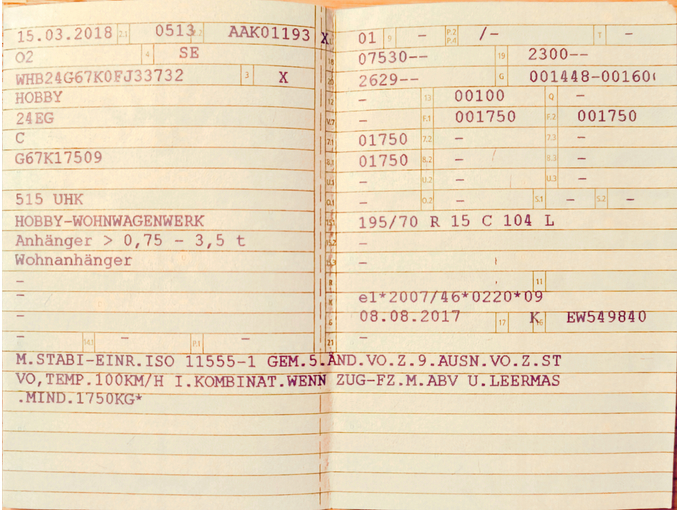 15.03.2018 2.1 0513 2.2 AAK01193 X
O2 4 SE
WHB24G67K0FJ33732 3 X
HOBBY
24EG
C
G67K17509
515 UHK
HOBBY-WOHNWAGENWERK
Anhänger > 0,75 - 3,5 t
Wohnanhänger
-
-
-
- - P.1 -
01 9 - P.2 P.4 /- T -
18 07530-- 19 2300--
20 2629-- G 001448-00160
12 - 13 00100 Q -
V.7 - F.1 001750 F.2 001750
7.1 01750 7.2 - 7.3 -
8.1 01750 8.2 - 8.3 -
U.1 - U.2 - U.3 -
O.1 - O.2 - S.1 - S.2 -
15.1 195/70 R 15 C 104 L
15.2 -
15.3 -
R 11
K e1*2007/46*0220*09
6 08.08.2017 17 K 16 EW549840
21 -
M.STABI-EINR.ISO 11555-1 GEM.5.ÄND.VO.Z.9.AUSN.VO.Z.ST
VO,TEMP.100KM/H I.KOMBINAT.WENN ZUG-FZ.M.ABV U.LEERMAS
.MIND.1750KG*